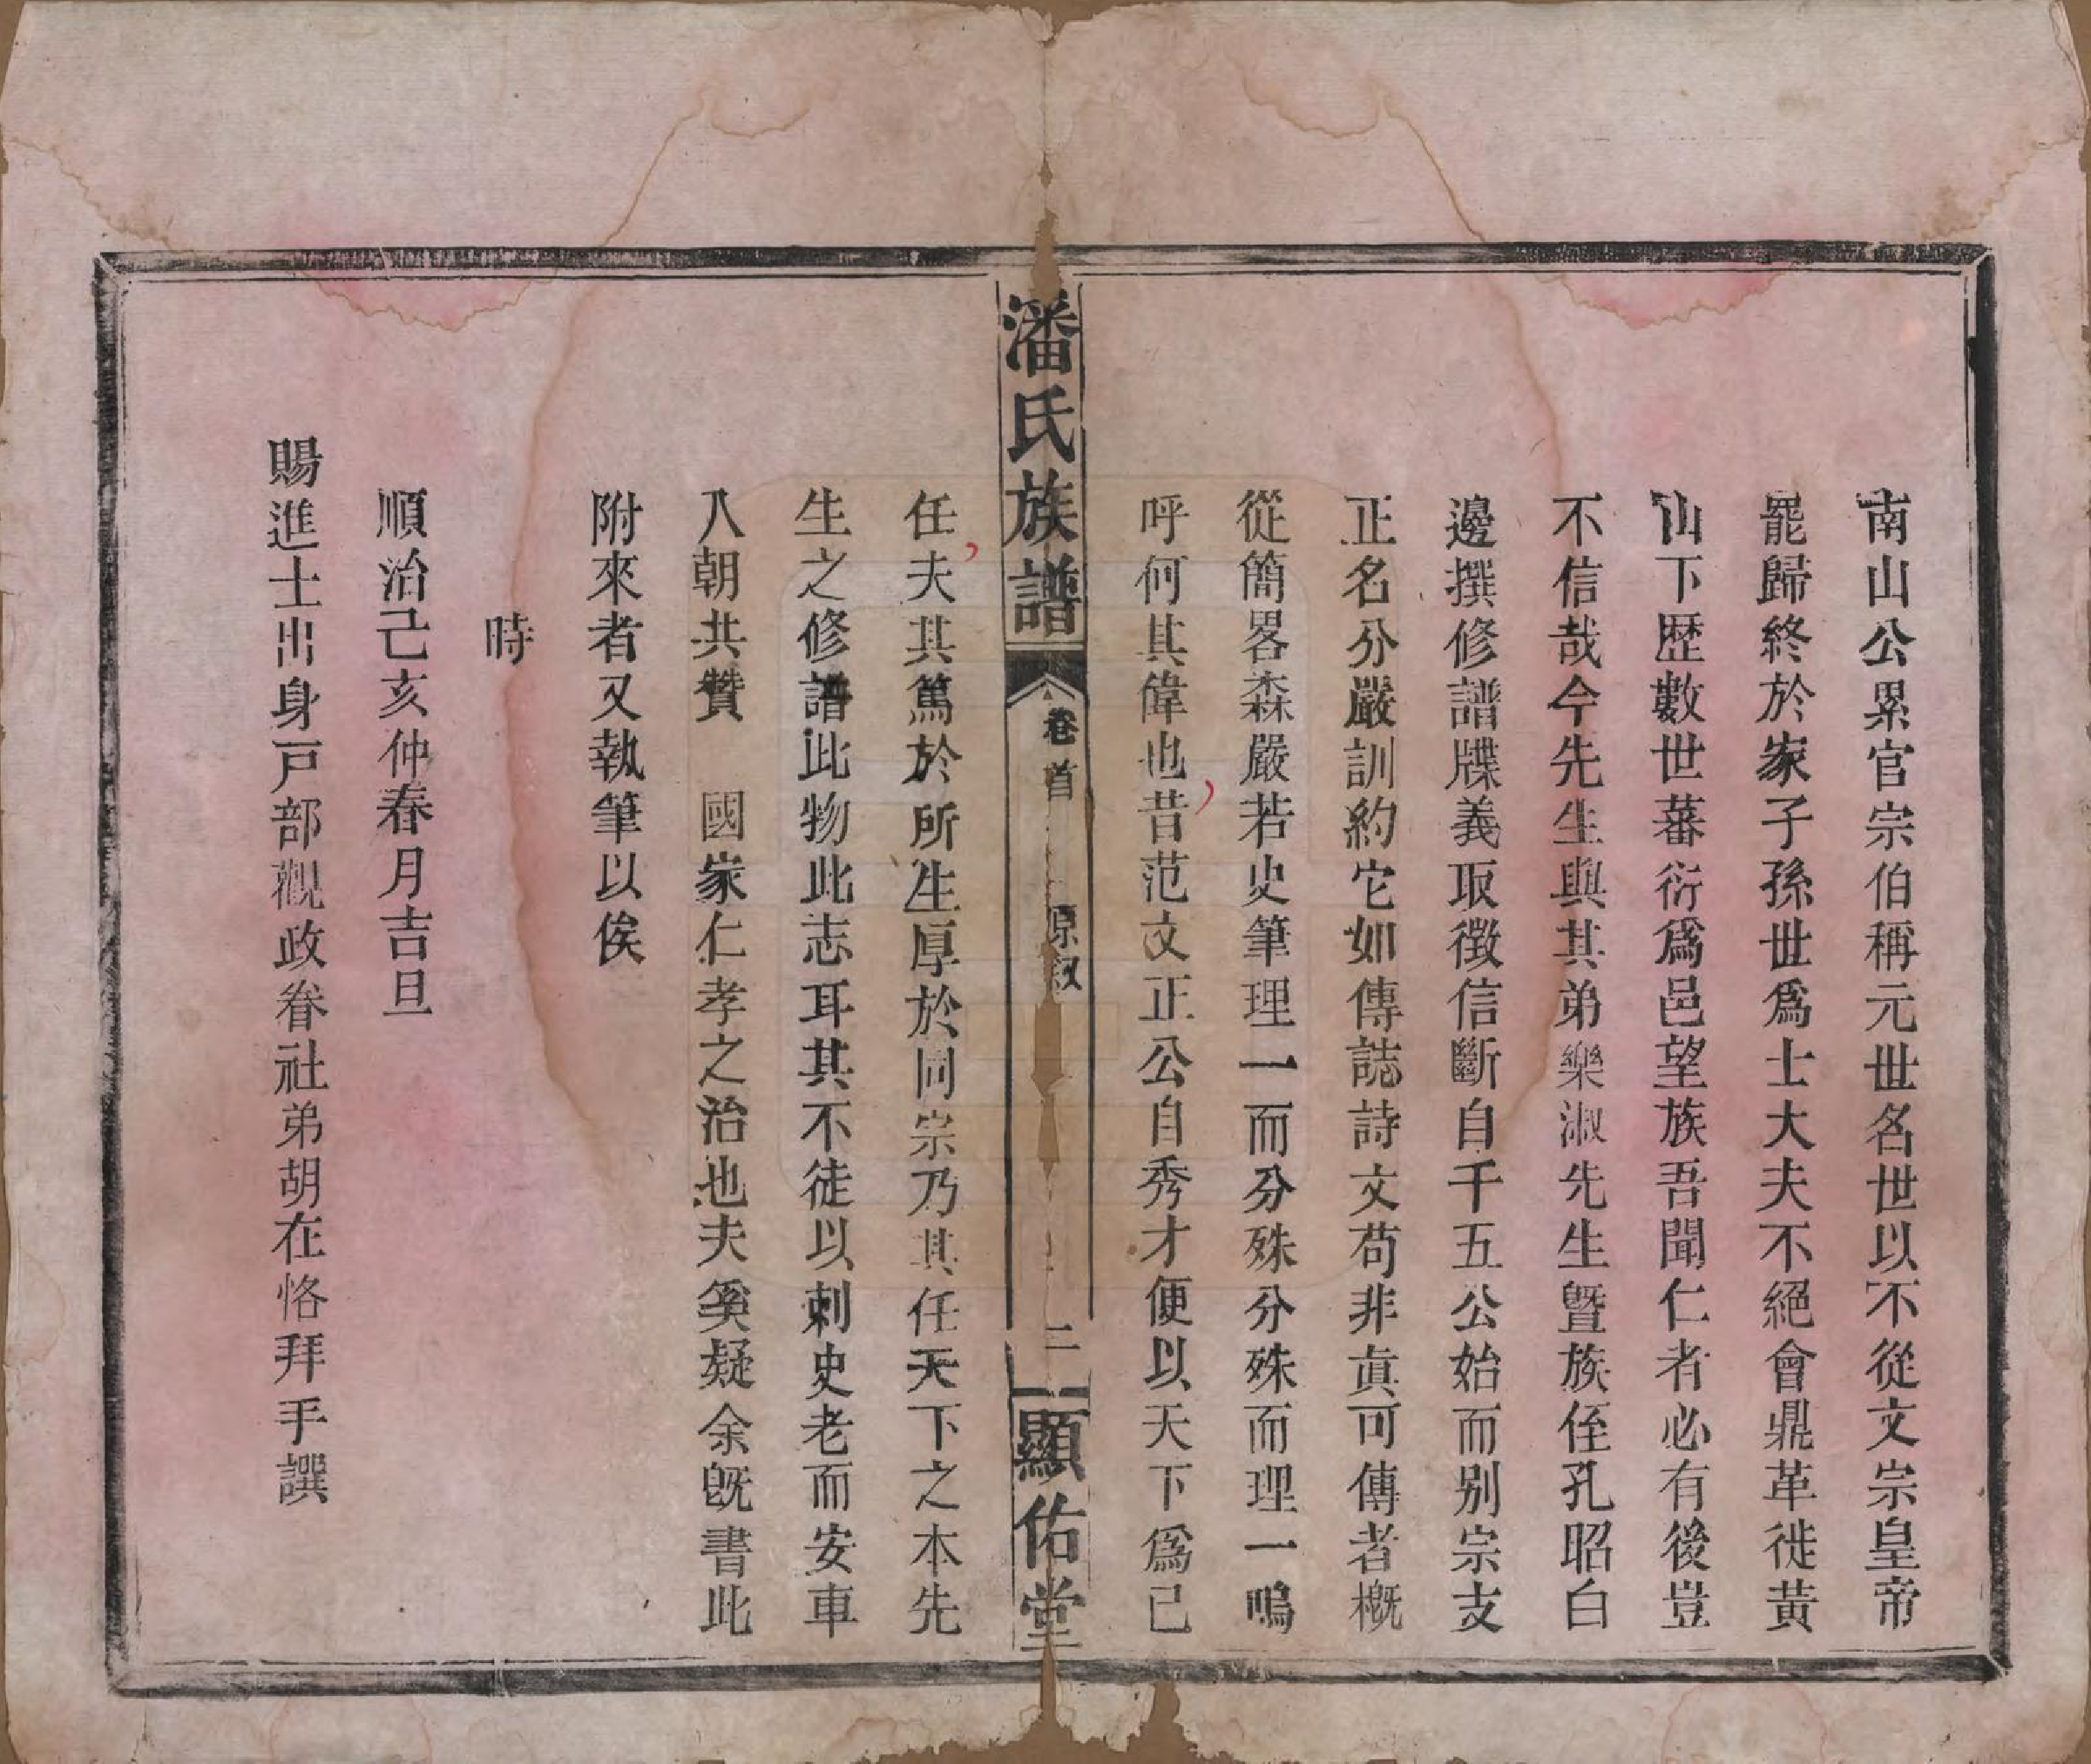 南山公累官宗伯稱元世名世以不從文宗皇帝
罷歸終於家子孫世爲士大夫不絕會鼎革徙黃
山下歷數世蕃衍爲邑望族吾聞仁者必有後豈
不信哉今先生與其弟樂淑先生曁族侄孔昭白
邊撰修譜牒義取徵信斷自千五公始而别宗支
正名分嚴訓約它如傳誌詩文苟非眞可傳者槪
從簡畧森嚴若史筆理一而分殊分殊而理一嗚
呼何其偉也昔范文正公自秀才便以天下爲已
潘氏族譜
卷首
原敘
二
顯佑堂
任夫其篤於所生厚於同宗乃其任天下之本先
生之修譜此物此志耳其不徒以剌史老而安車
入朝共贊 國家仁孝之治也夫奚疑余旣書此
附來者又執筆以俟
時
順治己亥仲春月吉旦
賜進士出身戸部觀政眷社弟胡在恪拜手譔